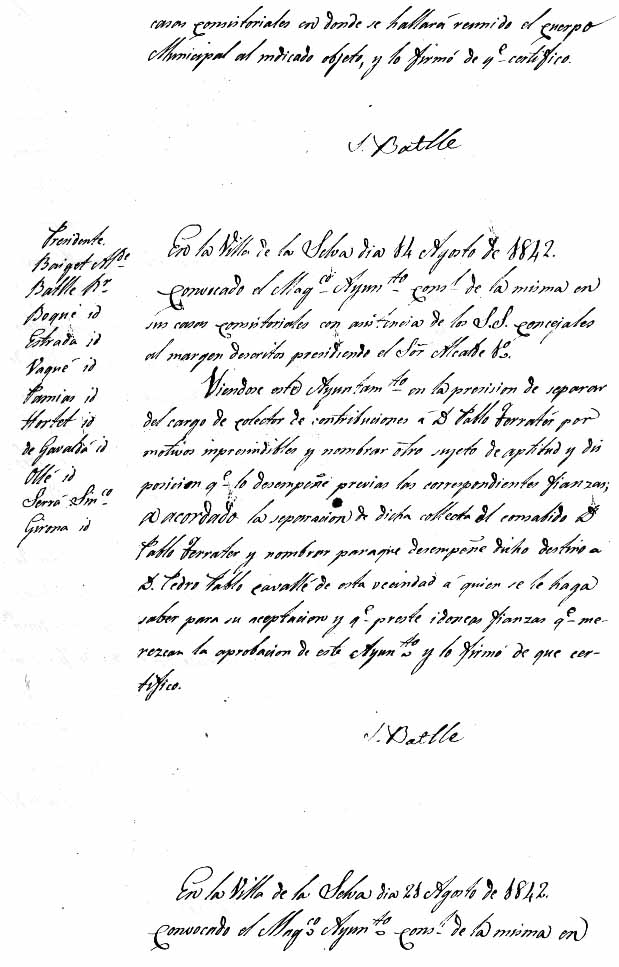 casas consistoriales en donde se hallará reunido el cuerpo
Municipal al indicado objeto, y lo firmó de qe certifico.
J. Batlle
Presidente.
Baiget Alde
Batlle Rr
Boqué id
Estrada id
Vaqué id
Pamias id
Hortet id
de Gavaldá id
Ollé id
Serrá Sinco
Girona id
En la Villa de la Selva dia 14 Agosto de 1842.
Convocado el Magco Ayunto consl de la misma en
sus casas consistoriales con asistencia de los S.S. concejales
al margen descritos presidiendo el Sor Alcalde 1o.
Viendose este Ayuntamto en la precision de separar
del cargo de colector de contribuciones á D. Pablo Ferratér por
motivos imprescindibles y nombrar otro sujeto de aptitud y dis
posicion qe lo desempeñe previas las correspondientes fianzas;
a acordado la separacion de dicha collecta del consabido D.
Pablo Ferratér y nombrar paraque desempeñe dicho destino a
D. Pedro Pablo Cavallé de esta vecindad á quien se le haga
saber para su aceptacion y qe preste idoneas fianzas qe me-
rezcan la aprobacion de este Ayunto y lo firmó de que cer-
tifico.
J. Batlle
En la Villa de la Selva dia 21 Agosto de 1842.
Convocado el Magco Ayunto consl de la misma en